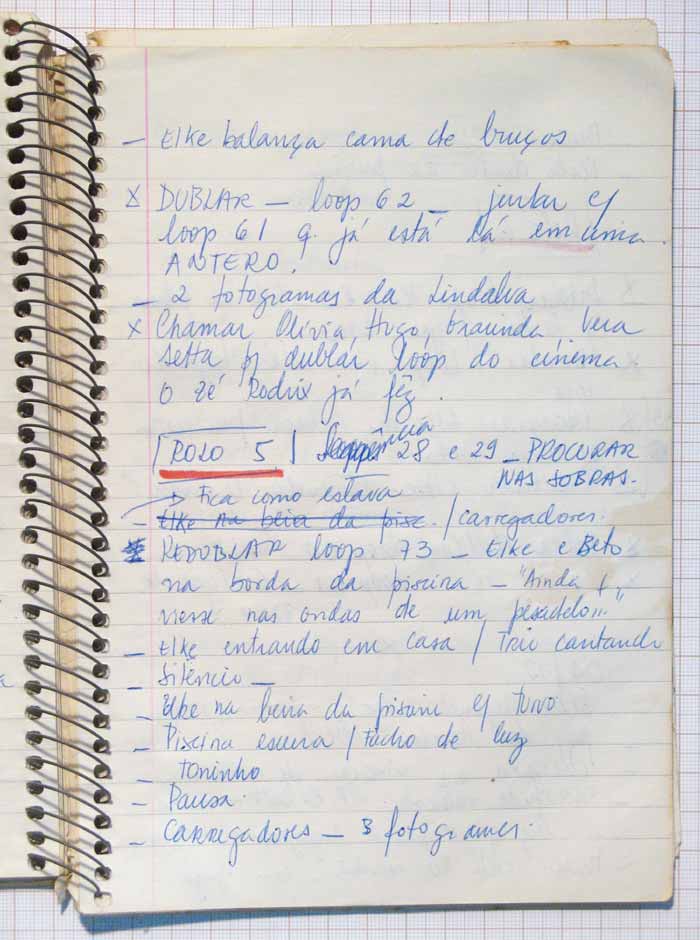 — Elke balança cama de bruços
X DUBLAR — loop 62 — juntar c/
loop 61 q. já está lá em cima.
ANTERO.
— 2 fotogramas da Lindalva
X Chamar Olivia Hugo Vera
Setta p/ dublar loop do cinema
O Zé Rodrix já fêz.
ROLO 5 Sequência 28 e 29 — PROCURAR
NAS SOBRAS.
→ Fica como estava
— Elke na beira da pisc. / Carregadores.
REDUBLAR loop 73 — Elke e Beto
na borda da piscina — "Ainda
nas ondas de um pesadelo..."
— Elke entrando em casa / Trio cantando
— Silêncio —
— Elke na beira da piscina c/ turvo
— Piscina escura / facho de luz
— Toninho
— Pausa.
— Carregadores — 3 fotogramas.